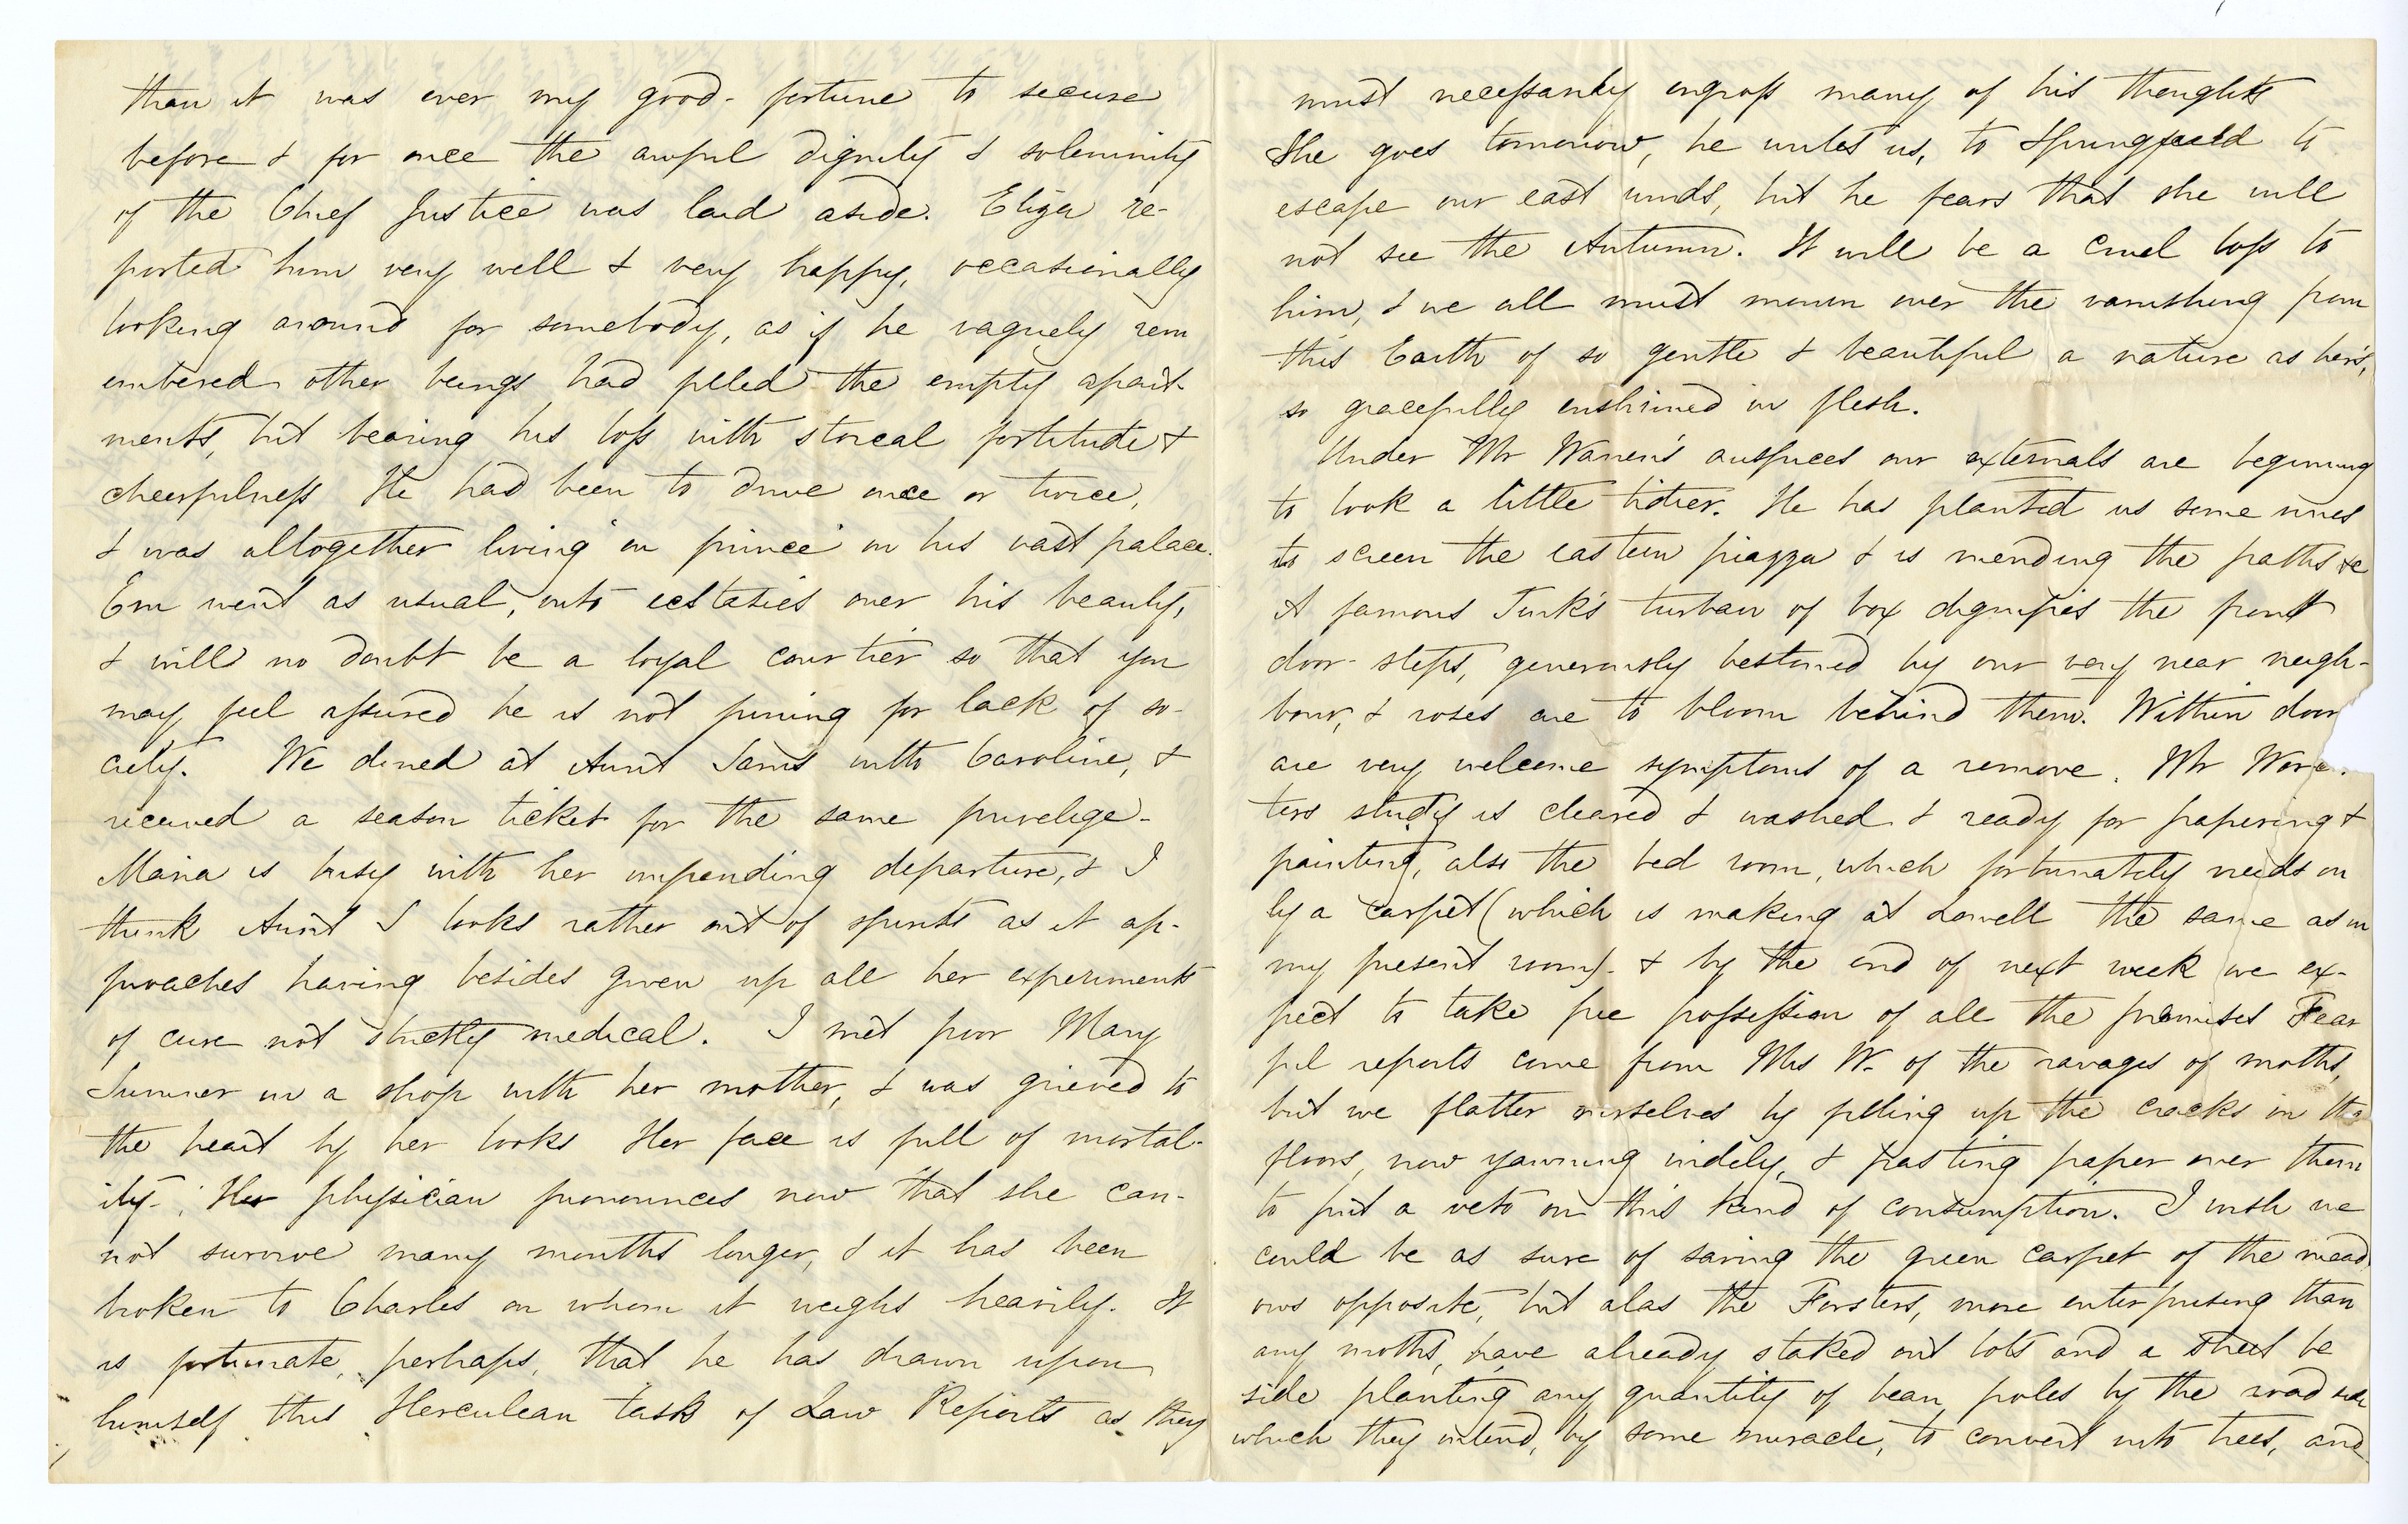 than it was ever my good-fortune to secure
before & for once the awful dignity & solemnity
of the Chief Justice was laid aside. Eliza re-
ported him very well & very happy, occasionally
looking around for somebody, as if he vaguely rem
embered other beings had filled the empty apart-
ments, but bearing his loss with stoical fortitude &
cheerfulness He had been to drive once or twice,
& was altogether living "en prince" in his vast palace.
Em went as usual, into ecstasies over his beauty,
& will no doubt be a loyal courtier so that you
may feel assured he is not pining for lack of so-
ciety. We dined at Aunt Sam's with Caroline, &
received a season ticket for the same privelige-
Maria is busy with her impending departure, & I
think Aunt S looks rather out of spirits as it ap-
proaches having besides given up all her experiments
of cure not strictly medical. I met poor Mary
Sumner in a shop with her mother, & was grieved to
the heart by her looks Her face is full of mortal-
ity-; Her physician pronounces now that she can-
not survive many months longer, & it has been
broken to Charles on whom it weighs heavily. It
is fortunate, perhaps, that he has drawn upon
himself this Herculean task of Law Reports as they
must necessarily engross many of his thoughts
She goes tomorrow, he writes us, to Springfield to
escape our east winds, but he fears that she will
not see the Autumn. It will be a cruel loss to
him, & we all must mourn over the vanishing from
this Earth of so gentle & beautiful a nature as her's,
so gracefully enshrined in flesh.
Under Mr Warren's auspices our externals are beginning
to look a little tidier. He has planted us some vines
to screen the eastern piazza & is mending the paths &c
A famous Turk's turban of box dignifies the front
door-steps, generously bestowed by our very near neigh-
bour, & roses are to bloom behind them. Within door
are very welcome symptoms of a remove. Mr Worces
ters study is cleared & washed & ready for papering &
painting, also the bed room, which fortunately needs on
ly a carpet (which is making at Lowell the same as in
my present room)- & by the end of next week we ex-
pect to take free possession of all the premises Fear
ful reports come from Mrs W. of the ravages of moths,
but we flatter ourselves by filling up the cracks in the
floors, now yawning widely, & pasting paper over them
to put a veto on this kind of consumption. I wish we
could be as sure of saving the green carpet of the mead
ows opposite, but alas the Forsters, more enterprising than
any moths, have already staked out lots and a street be
side planting any quantity of bean poles by the road side
which they intend, by some miracle, to convert into trees, and